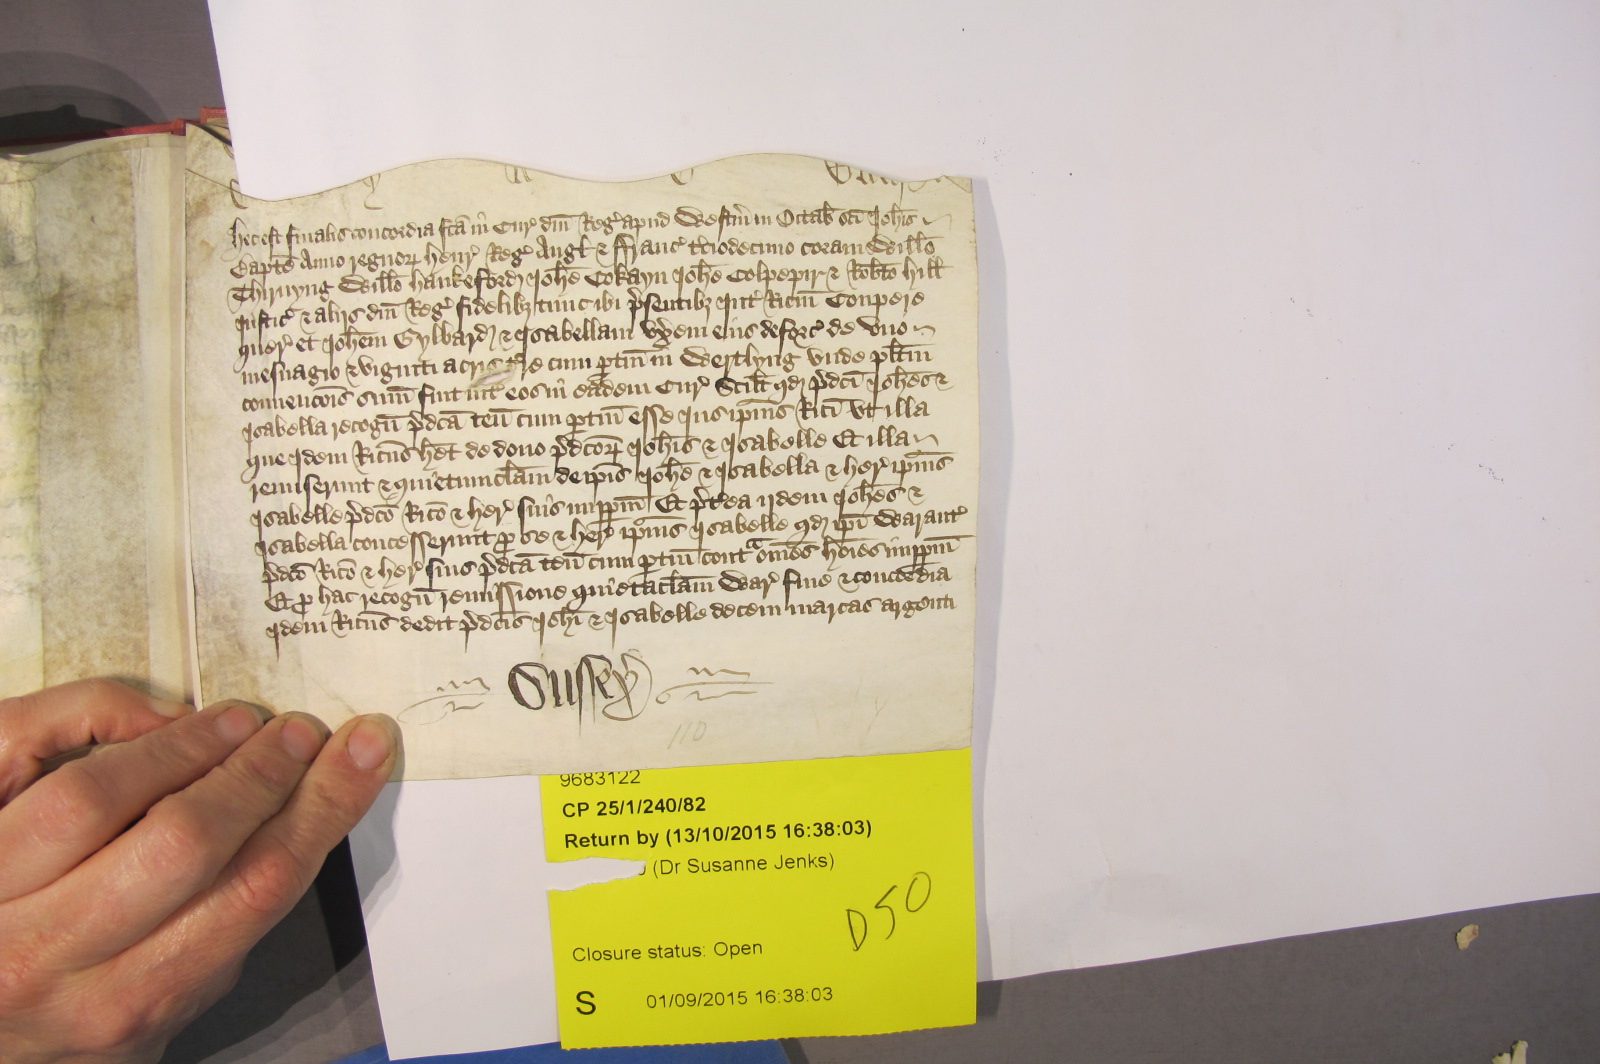 Hec est finalis concordia fcã in Cur dñi Reg apud Westm̃ in Octab sci Johis
Bapte Anno regnor Henr Reg Angl & Franc tciodecimo coram Willo
Thirnyng Willo Hankeford Johe Cokayn Johe Colpepir & Robto Hill
Justic & alijs dñi Reg fidelibz tunc ibi psentibz Int Ricm Coupere
quer et Johem Gylbard & Isabellam vxem eius deforc de vno
mesuagio & viginti acris tre cum ptin in Werthyng vnde plitm
convencois sum fuit int eos in eadem Cur Scilt qd pdci Johes &
Isabella recogn pdca ten cum ptin esse Jus ipius Rici vt illa
que idem Ricus het de dono pdcor Johis & Isabelle Et illa
remiserunt & quietumclam de ipis Johe & Isabella & her ipius
Isabelle pdco Rico & her suis imppm Et pterea ijdem Johes &
Isabella concesserunt p se & her ipius Isabelle qd ipi Warant
pdco Rico & her suis pdca ten cum ptin contª omes hoies imppm
Et p hac recogn remissione quietaclam War fine & concordia
idem Ricus dedit pdcis Johi & Isabelle decem marcas argenti
Sussex
110
9683122
CP 25/1/240/82
Return by (13/10/2015 16:38:03)
(Dr Susanne Jenks)
D50
Closure status: Open
S 01/09/2015 16:38:03